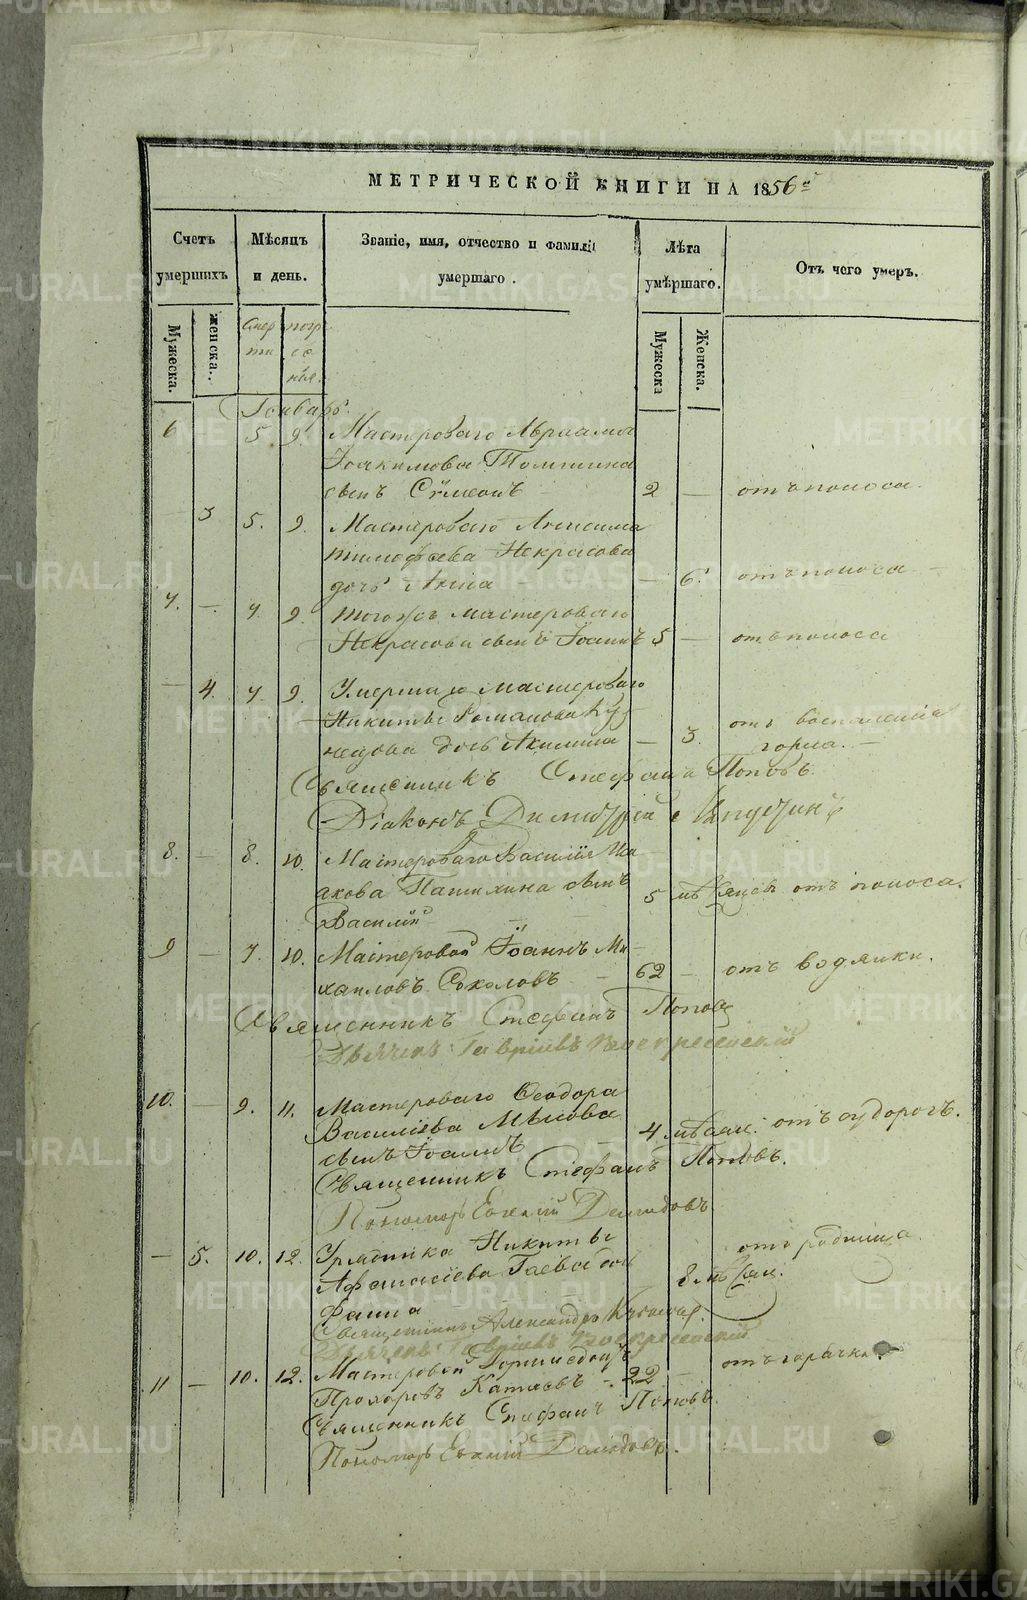 МЕТРИЧЕСКОЙ КНИГИ НА 1856й
Счетъ умершихъ
Мѣсяцъ и день.
Званіе, имя, отчество и фамилія умершаго.
Лѣта умѣршаго.
Отъ чего умеръ.
Мужеска.
женска.
Смерти
погребенія.
Мужеска
Женска.
Генварь
6 5. 9. Мастероваго Авраама
Іоакимова
сынъ Сѵмеонъ 2 — отъ поноса.
3 5. 9. Мастероваго Анисима
Тимофѣева Некрасова
дочь Анна — 6. отъ поноса —
7. — 7. 9. Тогожъ мастероваго
Некрасова сынъ Іоаннъ 5 — отъ поноса
— 4. 7. 9. Умершаго Мастероваго
Никиты Романова
дочь Акилина — 3. отъ воспаленія
горла. —
Священникъ Стефанъ Поповъ.
Діаконъ Димитрій
8. — 8. 10. Мастероваго Василія Иса
акова сынъ
Василій 5 мѣсяцевъ отъ поноса.
9 — 7. 10. Мастеровой Іоаннъ Ми
хаиловъ Соколовъ — 62 — отъ водянки.
Священникъ Стефанъ Поповъ
Дьячекъ Гавріилъ Воскресенскій
10. — 9. 11. Мастероваго Ѳеодора
Василіева Мѣлова
сынъ Іоаннъ 4 мѣсяц. отъ судорогъ.
Священникъ Стефанъ Поповъ.
Пономарь Евгеній Демидовъ.
— 5. 10. 12. Урядника Никиты
Афанасіева Гаева дочь
Фаина 8 мѣсяц. отъ родимца.
Священникъ Александръ
Дьячекъ Гавріилъ Воскресенскій
11 — 10. 12. Мастеровой
Прохоровъ Катаевъ — 22 — отъ горячки.
Священникъ Стефанъ Поповъ.
Пономарь Евгеній Демидовъ.
METRIKI.GASO-URAL.RU